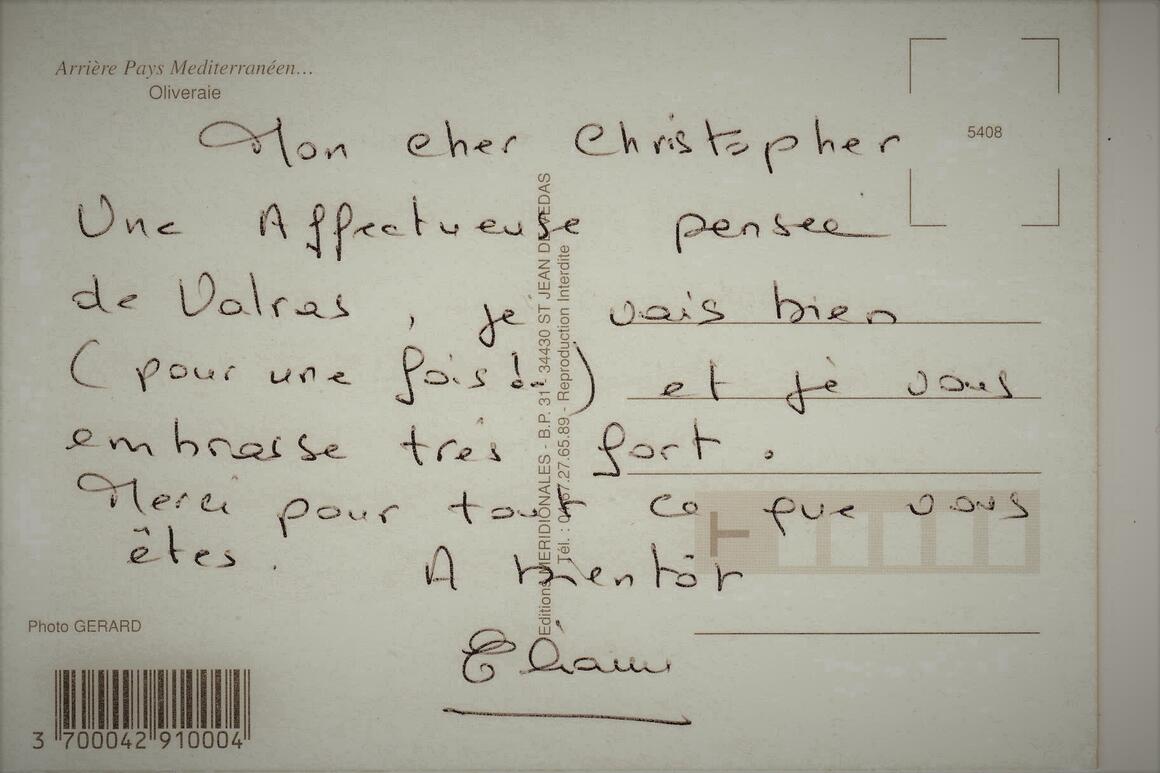 Arrière Pays Mediterranéen...
Oliveraie
5408
Mon cher Christopher
Une Affectueuse pensée
de Valras, je vais bien
(pour une fois!..) et je vous
embrasse très fort.
Merci pour tout ce que vous
êtes. A bientôt
Editions MERIDIONALES - B.P. 31 - 34430 ST JEAN DE VEDAS
Tél. : 67.27.65.89 - Reproduction Interdite
Photo GERARD
3 700042 910004